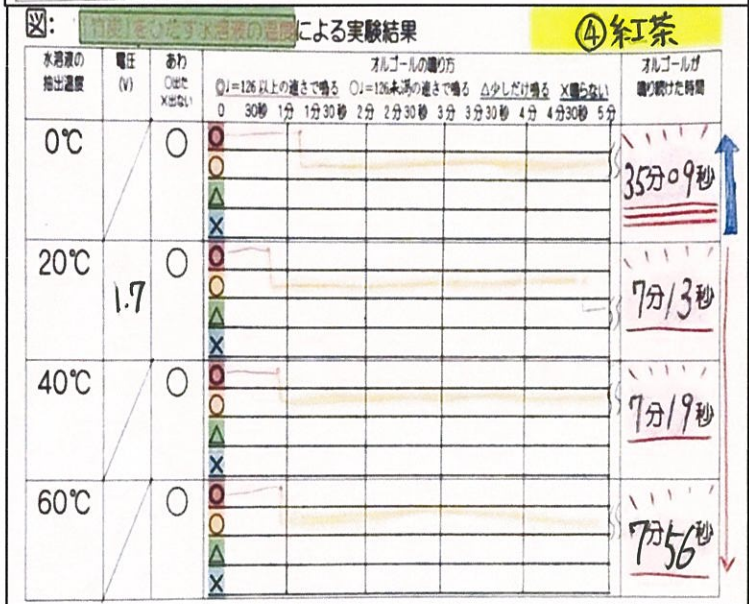 図: 「竹炭」をひたす水溶液の温度による実験結果
④紅茶
水溶液の抽出温度 電圧(V) あわ ○出た ×出ない オルゴールの鳴り方 オルゴールが鳴り続けた時間
◎♩=126以上の速さで鳴る ○♩=126未満の速さで鳴る △少しだけ鳴る ×鳴らない
0 30秒 1分 1分30秒 2分 2分30秒 3分 3分30秒 4分 4分30秒 5分
0℃ ○ ◎ ○ △ × 35分09秒
20℃ 1.7 ○ ◎ ○ △ × 7分13秒
40℃ ○ ◎ ○ △ × 7分19秒
60℃ ○ ◎ ○ △ × 7分56秒